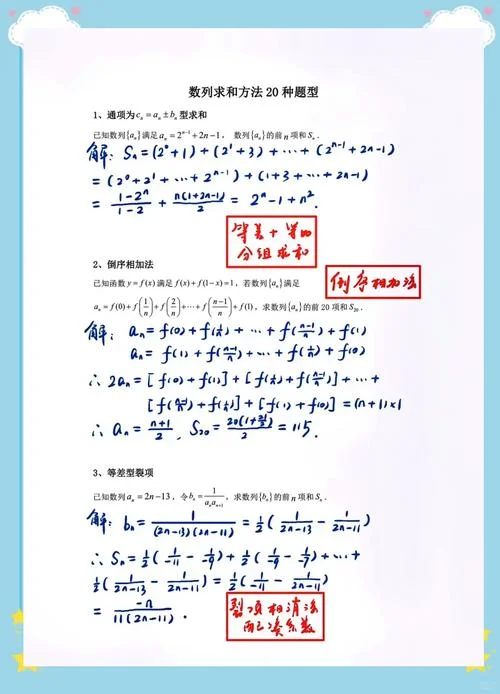 数列求和方法 20 种题型
1、通项为 cₙ = aₙ ± bₙ 型求和
已知数列{aₙ}满足 aₙ = 2ⁿ⁻¹ + 2n − 1， 数列{aₙ}的前 n 项和 Sₙ.
解: Sₙ = (2⁰+1) + (2¹+3) + ⋯ + (2ⁿ⁻¹+2n-1)
= (2⁰+2¹+⋯+2ⁿ⁻¹) + (1+3+⋯+2n-1)
= (1-2ⁿ)/(1-2) + n(1+2n-1)/2 = 2ⁿ-1+n².
等差+等比
分组求和
2、倒序相加法
倒序相加法
已知函数 y = f(x) 满足 f(x) + f(1−x) = 1，若数列{aₙ}满足
aₙ = f(0) + f(1/n) + f(2/n) + ⋯ + f((n−1)/n) + f(1)，求数列{aₙ}的前 20 项和 S₂₀.
解: aₙ = f(0) + f(1/n) + ⋯ + f((n-1)/n) + f(1)
aₙ = f(1) + f((n-1)/n) + ⋯ + f(1/n) + f(0)
∴ 2aₙ = [f(0) + f(1)] + [f(1/n) + f((n-1)/n)] + ⋯ +
[f((n-1)/n) + f(1/n)] + [f(1) + f(0)] = (n+1)×1
∴ aₙ = (n+1)/2, S₂₀ = 20(1+21/2)/2 = 115.
3、等差型裂项
已知数列 aₙ = 2n − 13，令 bₙ = 1/(aₙaₙ₊₁)，求数列{bₙ}的前 n 项和 Sₙ.
解: bₙ = 1/((2n-13)(2n-11)) = 1/2(1/(2n-13) - 1/(2n-11))
∴ Sₙ = 1/2(1/-11 - 1/-9) + 1/2(1/-9 - 1/-7) + ⋯ +
1/2(1/(2n-13) - 1/(2n-11)) = 1/2(1/-11 - 1/(2n-11))
= -n/(11(2n-11)).
裂项相消法
配凑系数